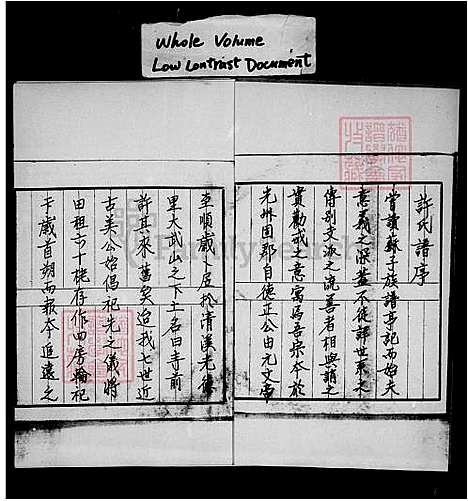 Whole Volume
Low Contrast Document
許氏譜序
嘗讀蘇子族譜亭記而始夫
意義之深蓋不徒譯世系
傳別支派之流善者相與誚之
實勸戒之意寓焉吾宗本於
光州固郡自德正公由元文帝
至順歲人居於清溪光
里大武山之下土名曰寺前
許其來舊矣迨我七世近
古美公始偈祀先之儀將
田租六十栳存作四房輪祀
于歲首朔而報本追遠之